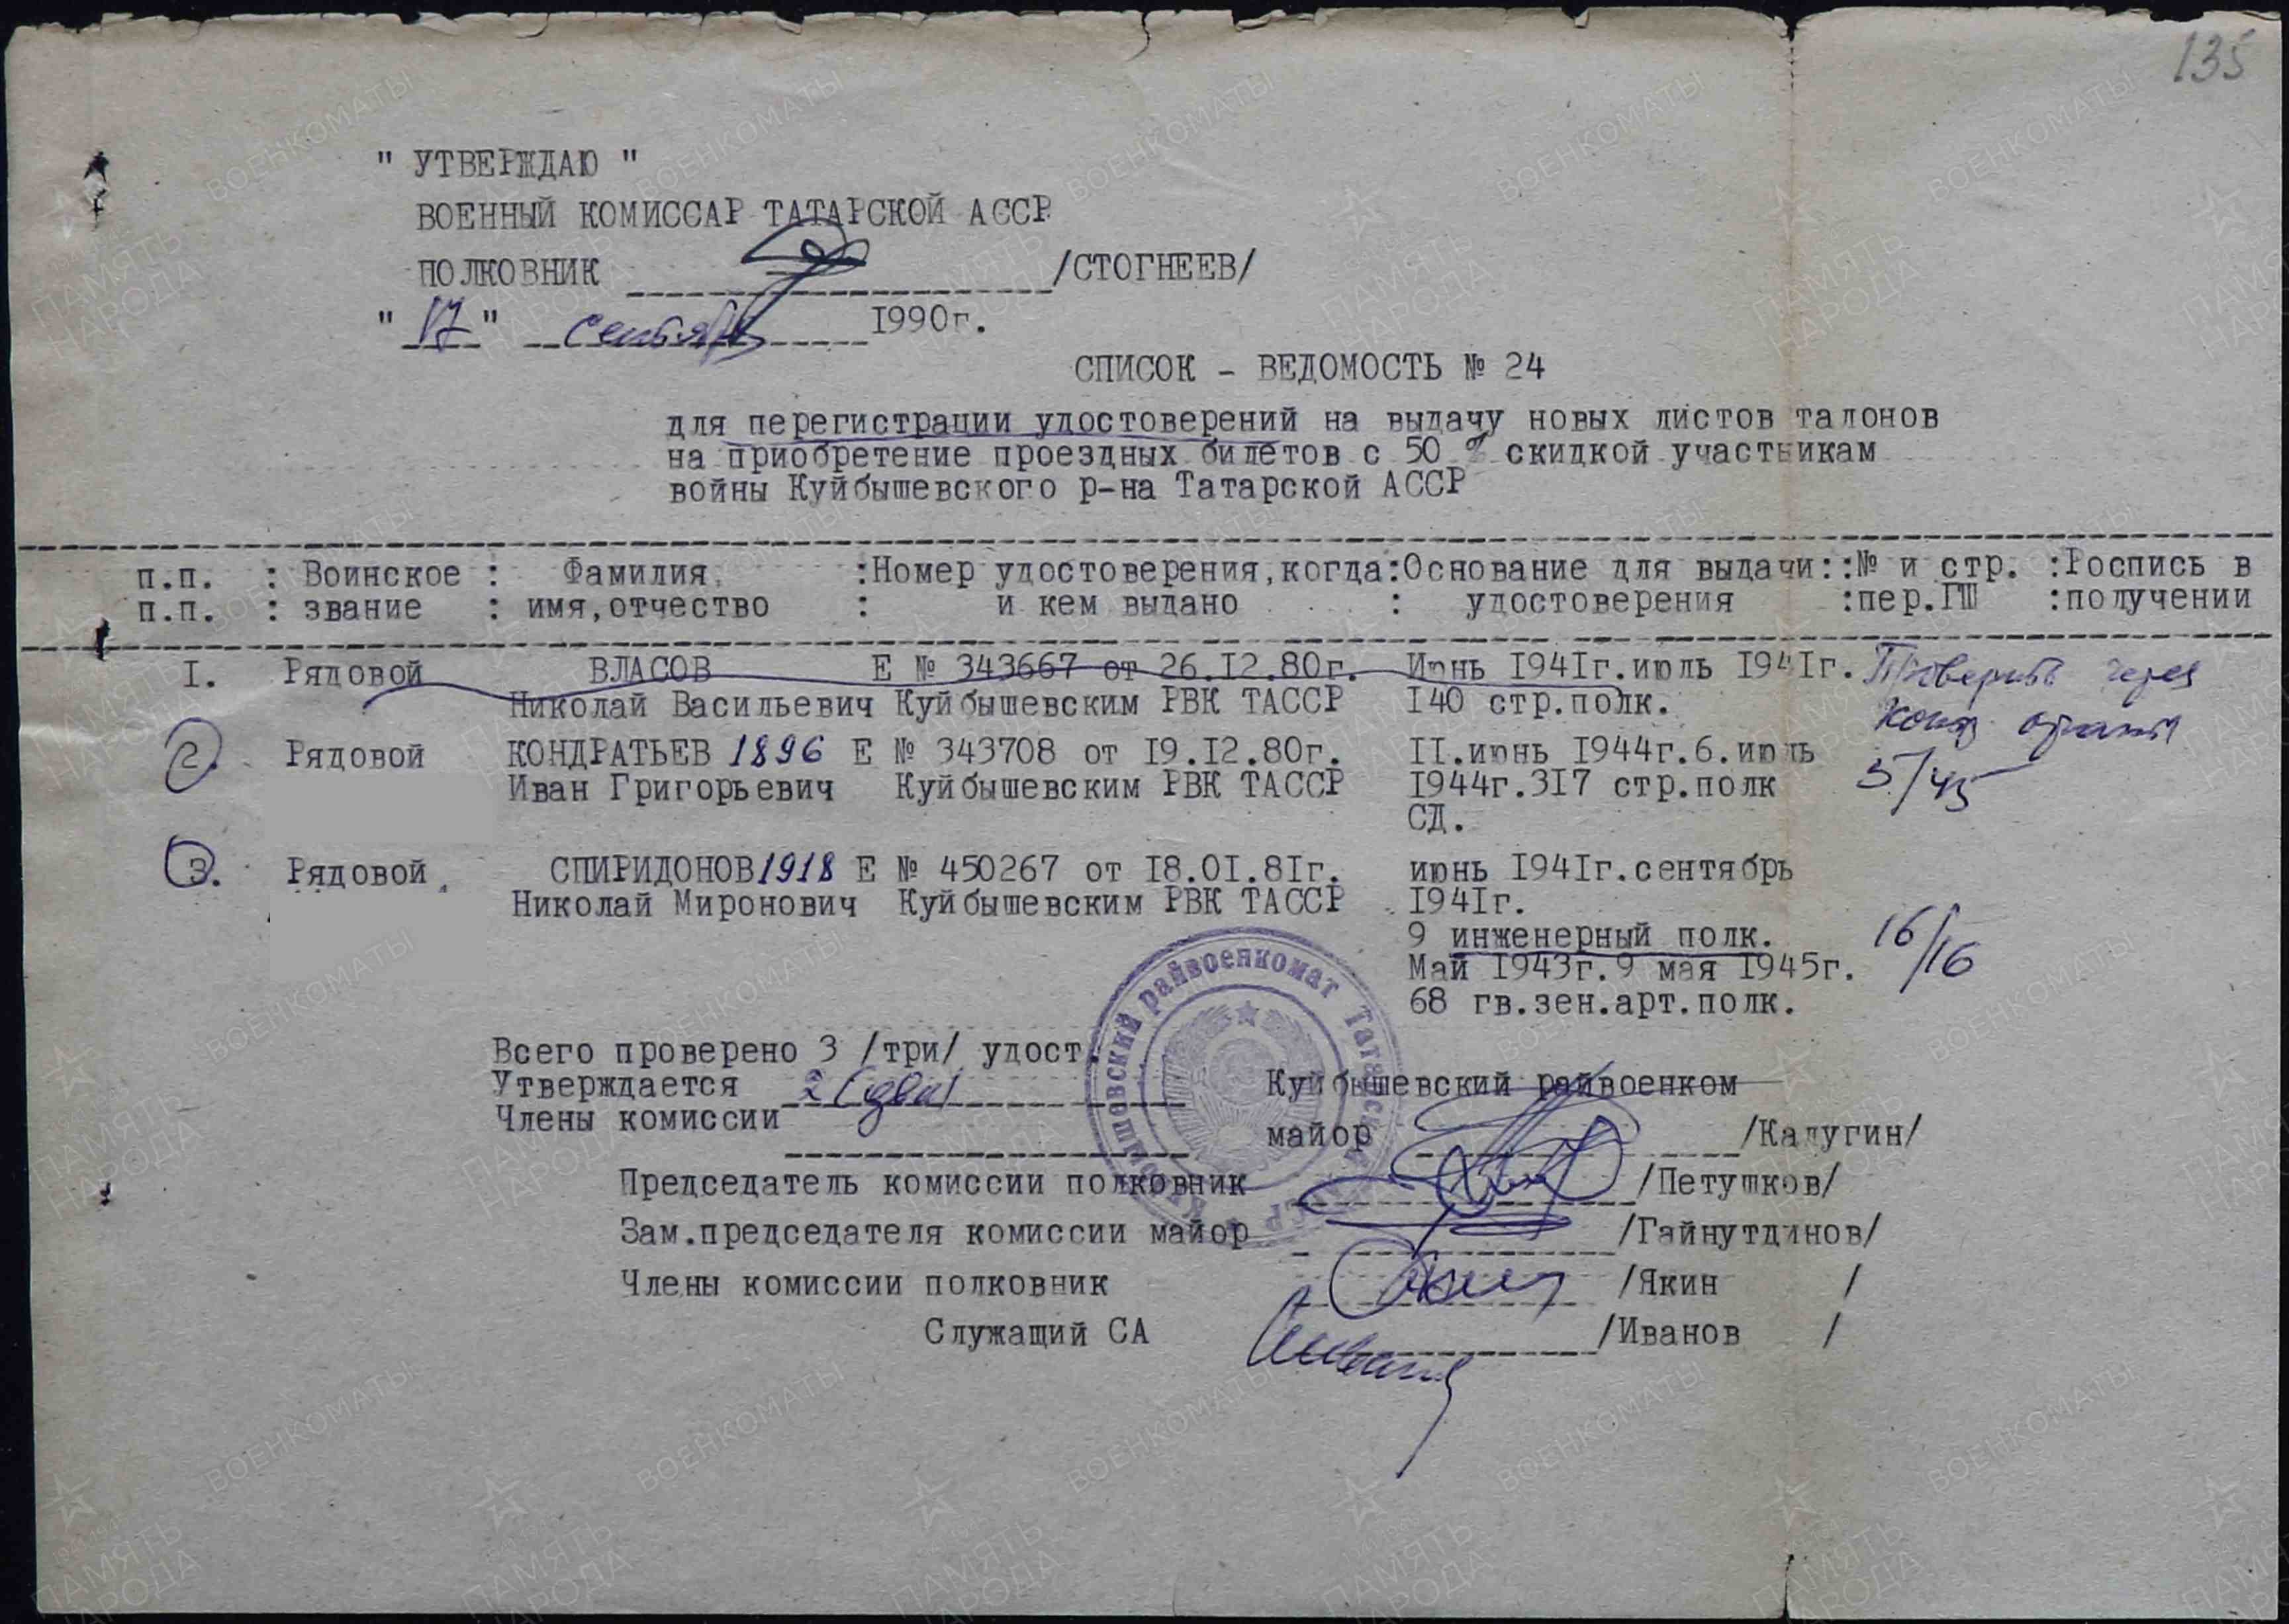 135
" УТВЕРЖДАЮ "
ВОЕННЫЙ КОМИССАР ТАТАРСКОЙ АССР
ПОЛКОВНИК /СТОГНЕЕВ/
" 17 " сентября 1990г.
СПИСОК - ВЕДОМОСТЬ № 24
для перегистрации удостоверений на выдачу новых листов талонов
на приобретение проездных билетов с 50 % скидкой участникам
войны Куйбышевского р-на Татарской АССР
п.п. : Воинское : Фамилия, :Номер удостоверения,когда:Основание для выдачи::№ и стр. :Роспись в
п.п. : звание : имя,отчество : и кем выдано : удостоверения :пер.ГШ :получении
I. Рядовой ВЛАСОВ Е № 343667 от 26.I2.80г. Июнь I94Iг.июль I94Iг. Проверить через
Николай Васильевич Куйбышевским РВК ТАССР I40 стр.полк.
2. Рядовой КОНДРАТЬЕВ 1896 Е № 343708 от I9.I2.80г. II.июнь I944г.6.июль
Иван Григорьевич Куйбышевским РВК ТАССР I944г.3I7 стр.полк 5/45
СД.
3. Рядовой СПИРИДОНОВ 1918 Е № 450267 от I8.0I.8Iг. июнь I94Iг.сентябрь
Николай Миронович Куйбышевским РВК ТАССР I94Iг.
9 инженерный полк. 16/16
Май I943г.9 мая I945г.
68 гв.зен.арт.полк.
Всего проверено 3 /три/ удост.
Утверждается 2 (два) Куйбышевский райвоенком
Члены комиссии
майор /Калугин/
Председатель комиссии полковник /Петушков/
Зам.председателя комиссии майор /Гайнутдинов/
Члены комиссии полковник /Якин /
Служащий СА /Иванов /
Куйбышевский райвоенкомат Татарской АССР
ПАМЯТЬ НАРОДА
ВОЕНКОМАТЫ